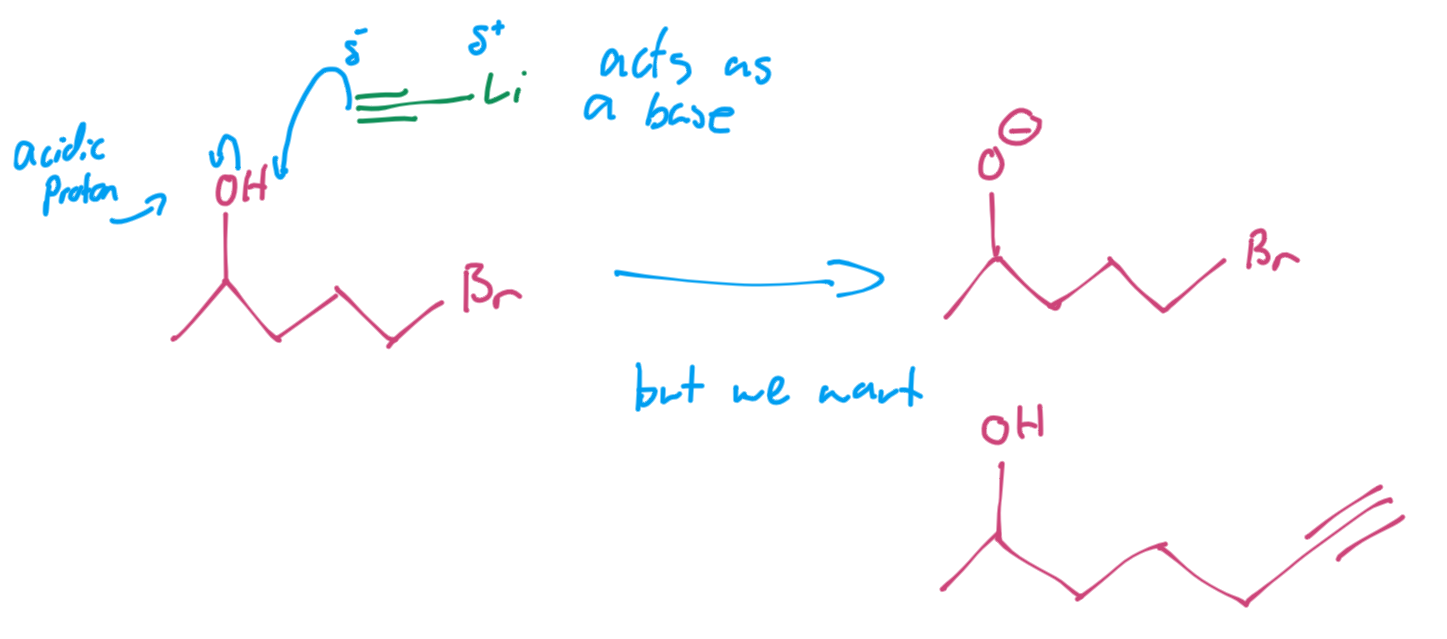 δ⁻
δ⁺
Li
acts as
a base
acidic
proton
OH
Br
O⊖
Br
but we want
OH